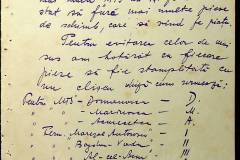 stat să fură mai multe piese
de schimb, care se vând pe piață.
Pentru evitarea celor de mai
sus am hotărât ca fiecare
piesă să fie ștampilată cu
un clișeu după cum urmează:
Pentru - Domnească - D
" " - Marina - M.
" " - A.
" Rem. Mareșal Antonescu - I
" " Bogdan Vodă - II
" " Șt. cel Mare - III